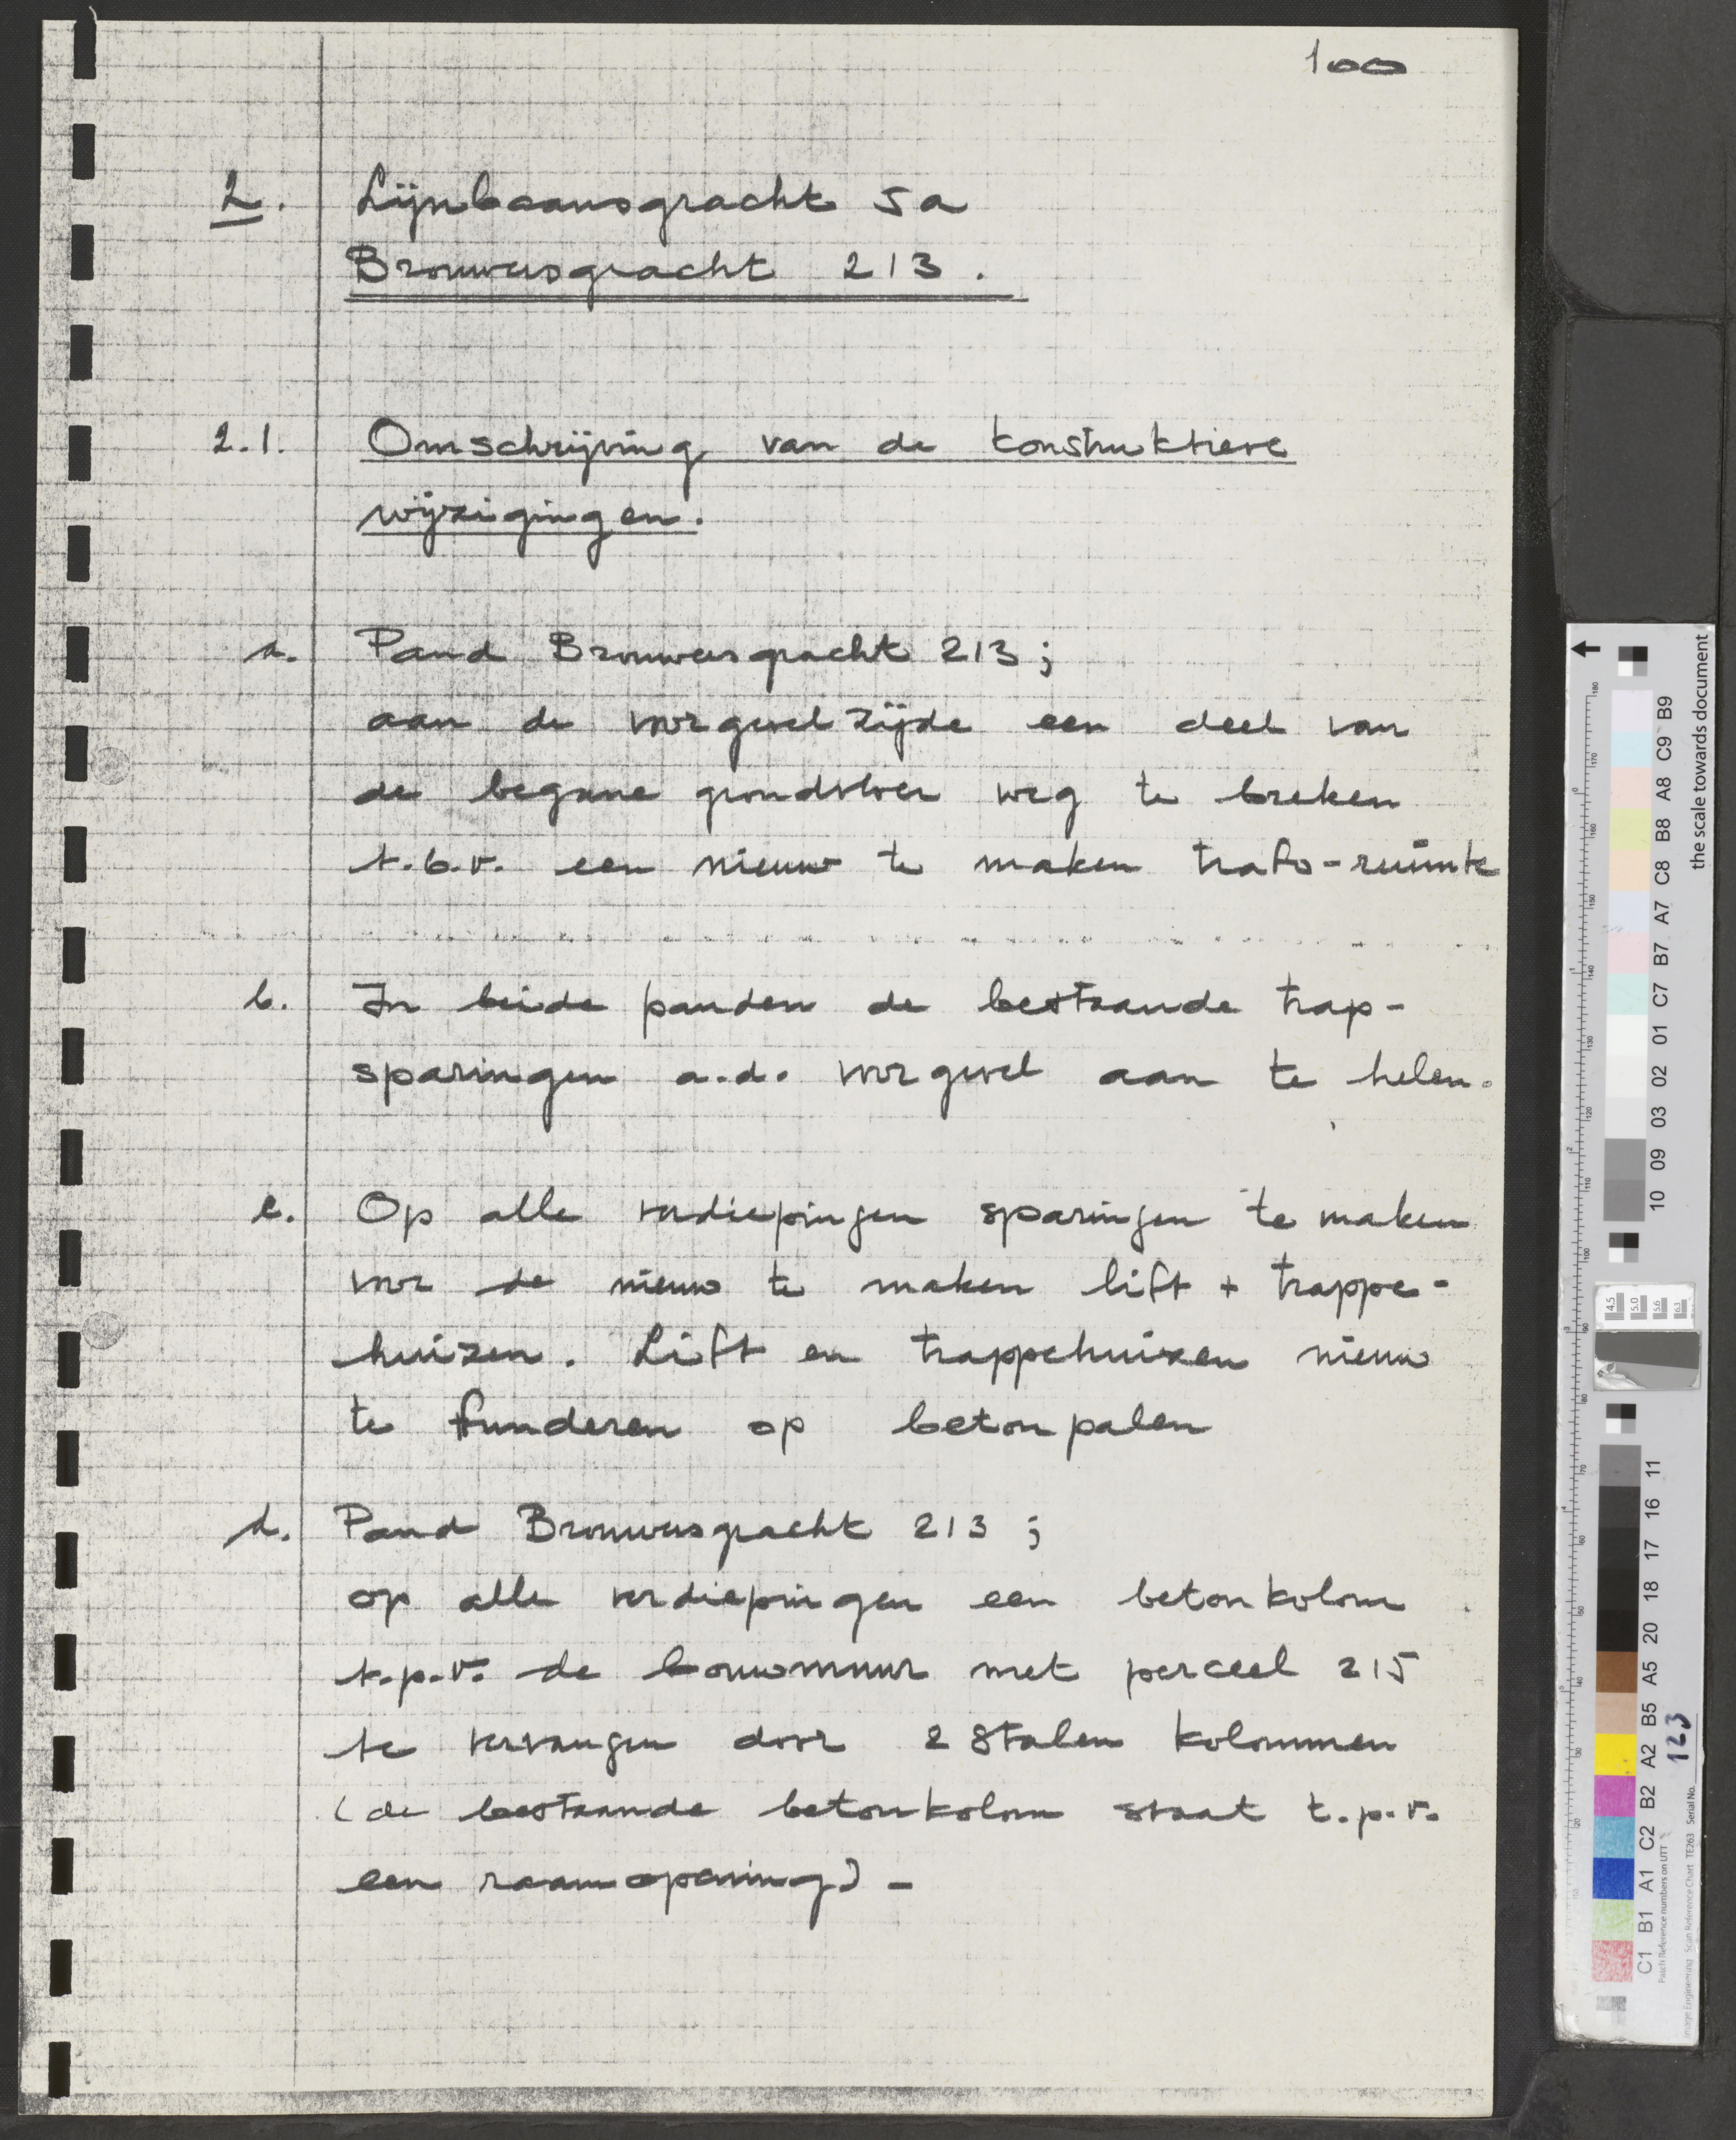 100
2. Lijnbaansgracht 5a
Brouwersgracht 213.
2.1. Omschrijving van de konstruktieve
wijzigingen.
a. Pand Brouwersgracht 213;
aan de voorgevelzijde een deel van
de begane grondvloer weg te breken
t.b.v. een nieuw te maken trafo-ruimte
b. In beide panden de bestaande trap-
sparingen a.d. voorgevel aan te helen.
c. Op alle verdiepingen sparingen te maken
voor de nieuw te maken lift + trappe-
huizen. Lift en trappehuizen nieuw
te funderen op betonpalen
d. Pand Brouwersgracht 213;
op alle verdiepingen een betonkolom
t.p.v. de bouwmuur met perceel 215
te vervangen door 2 stalen kolommen
(de bestaande betonkolom staat t.p.v.
een raamopening) -
the scale towards document
C1 B1 A1 C2 B2 A2 B5 A5 20 18 17 16 11
10 09 03 02 01 C7 B7 A7 C8 B8 A8 C9 B9
Patch Reference numbers on UTT
Image Engineering Scan Reference Chart TE263 Serial No. 123